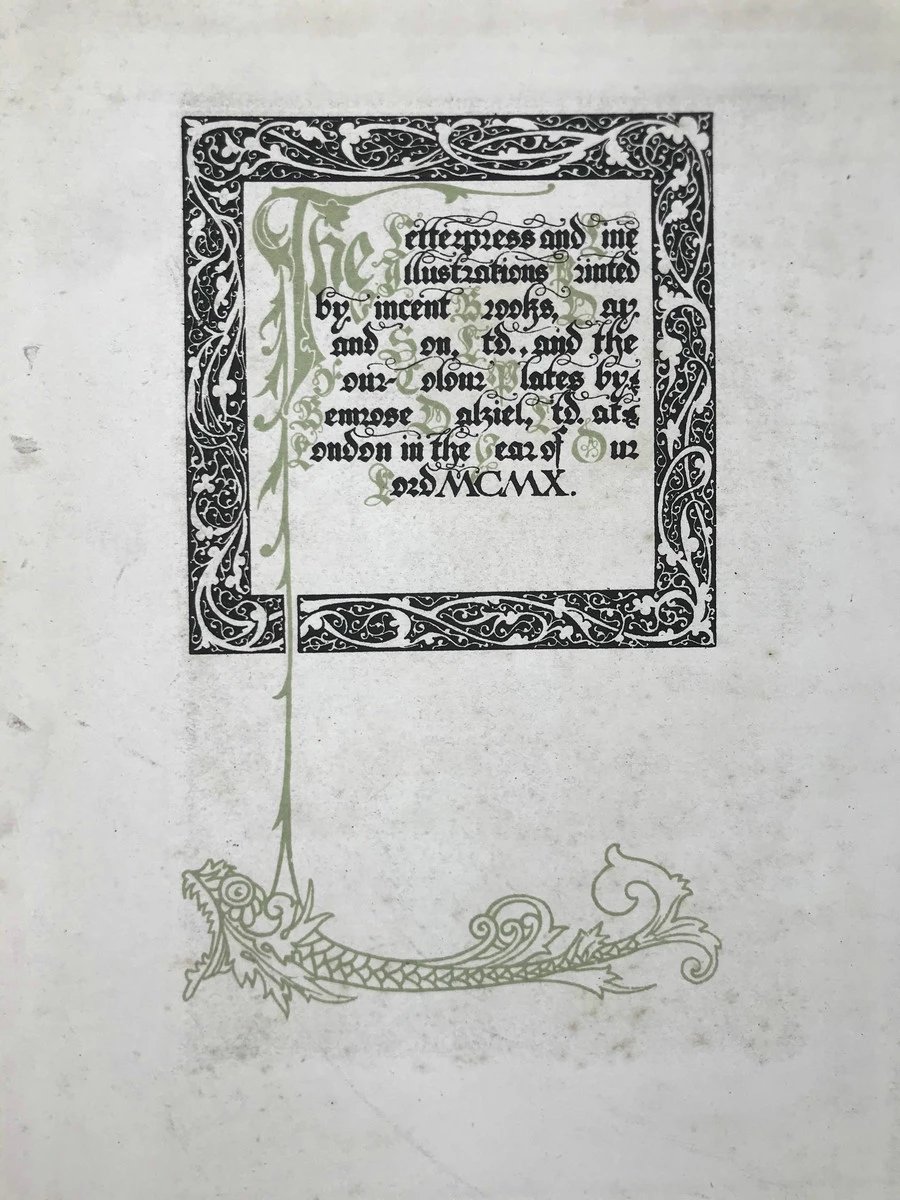 The Letterpress and Line
Illustrations Printed
by Vincent Brooks, Day
and Son, Ltd., and the
Four-Colour Plates by
Bemrose Dalziel, Ltd. at
London in the Year of Our
Lord MCMX.